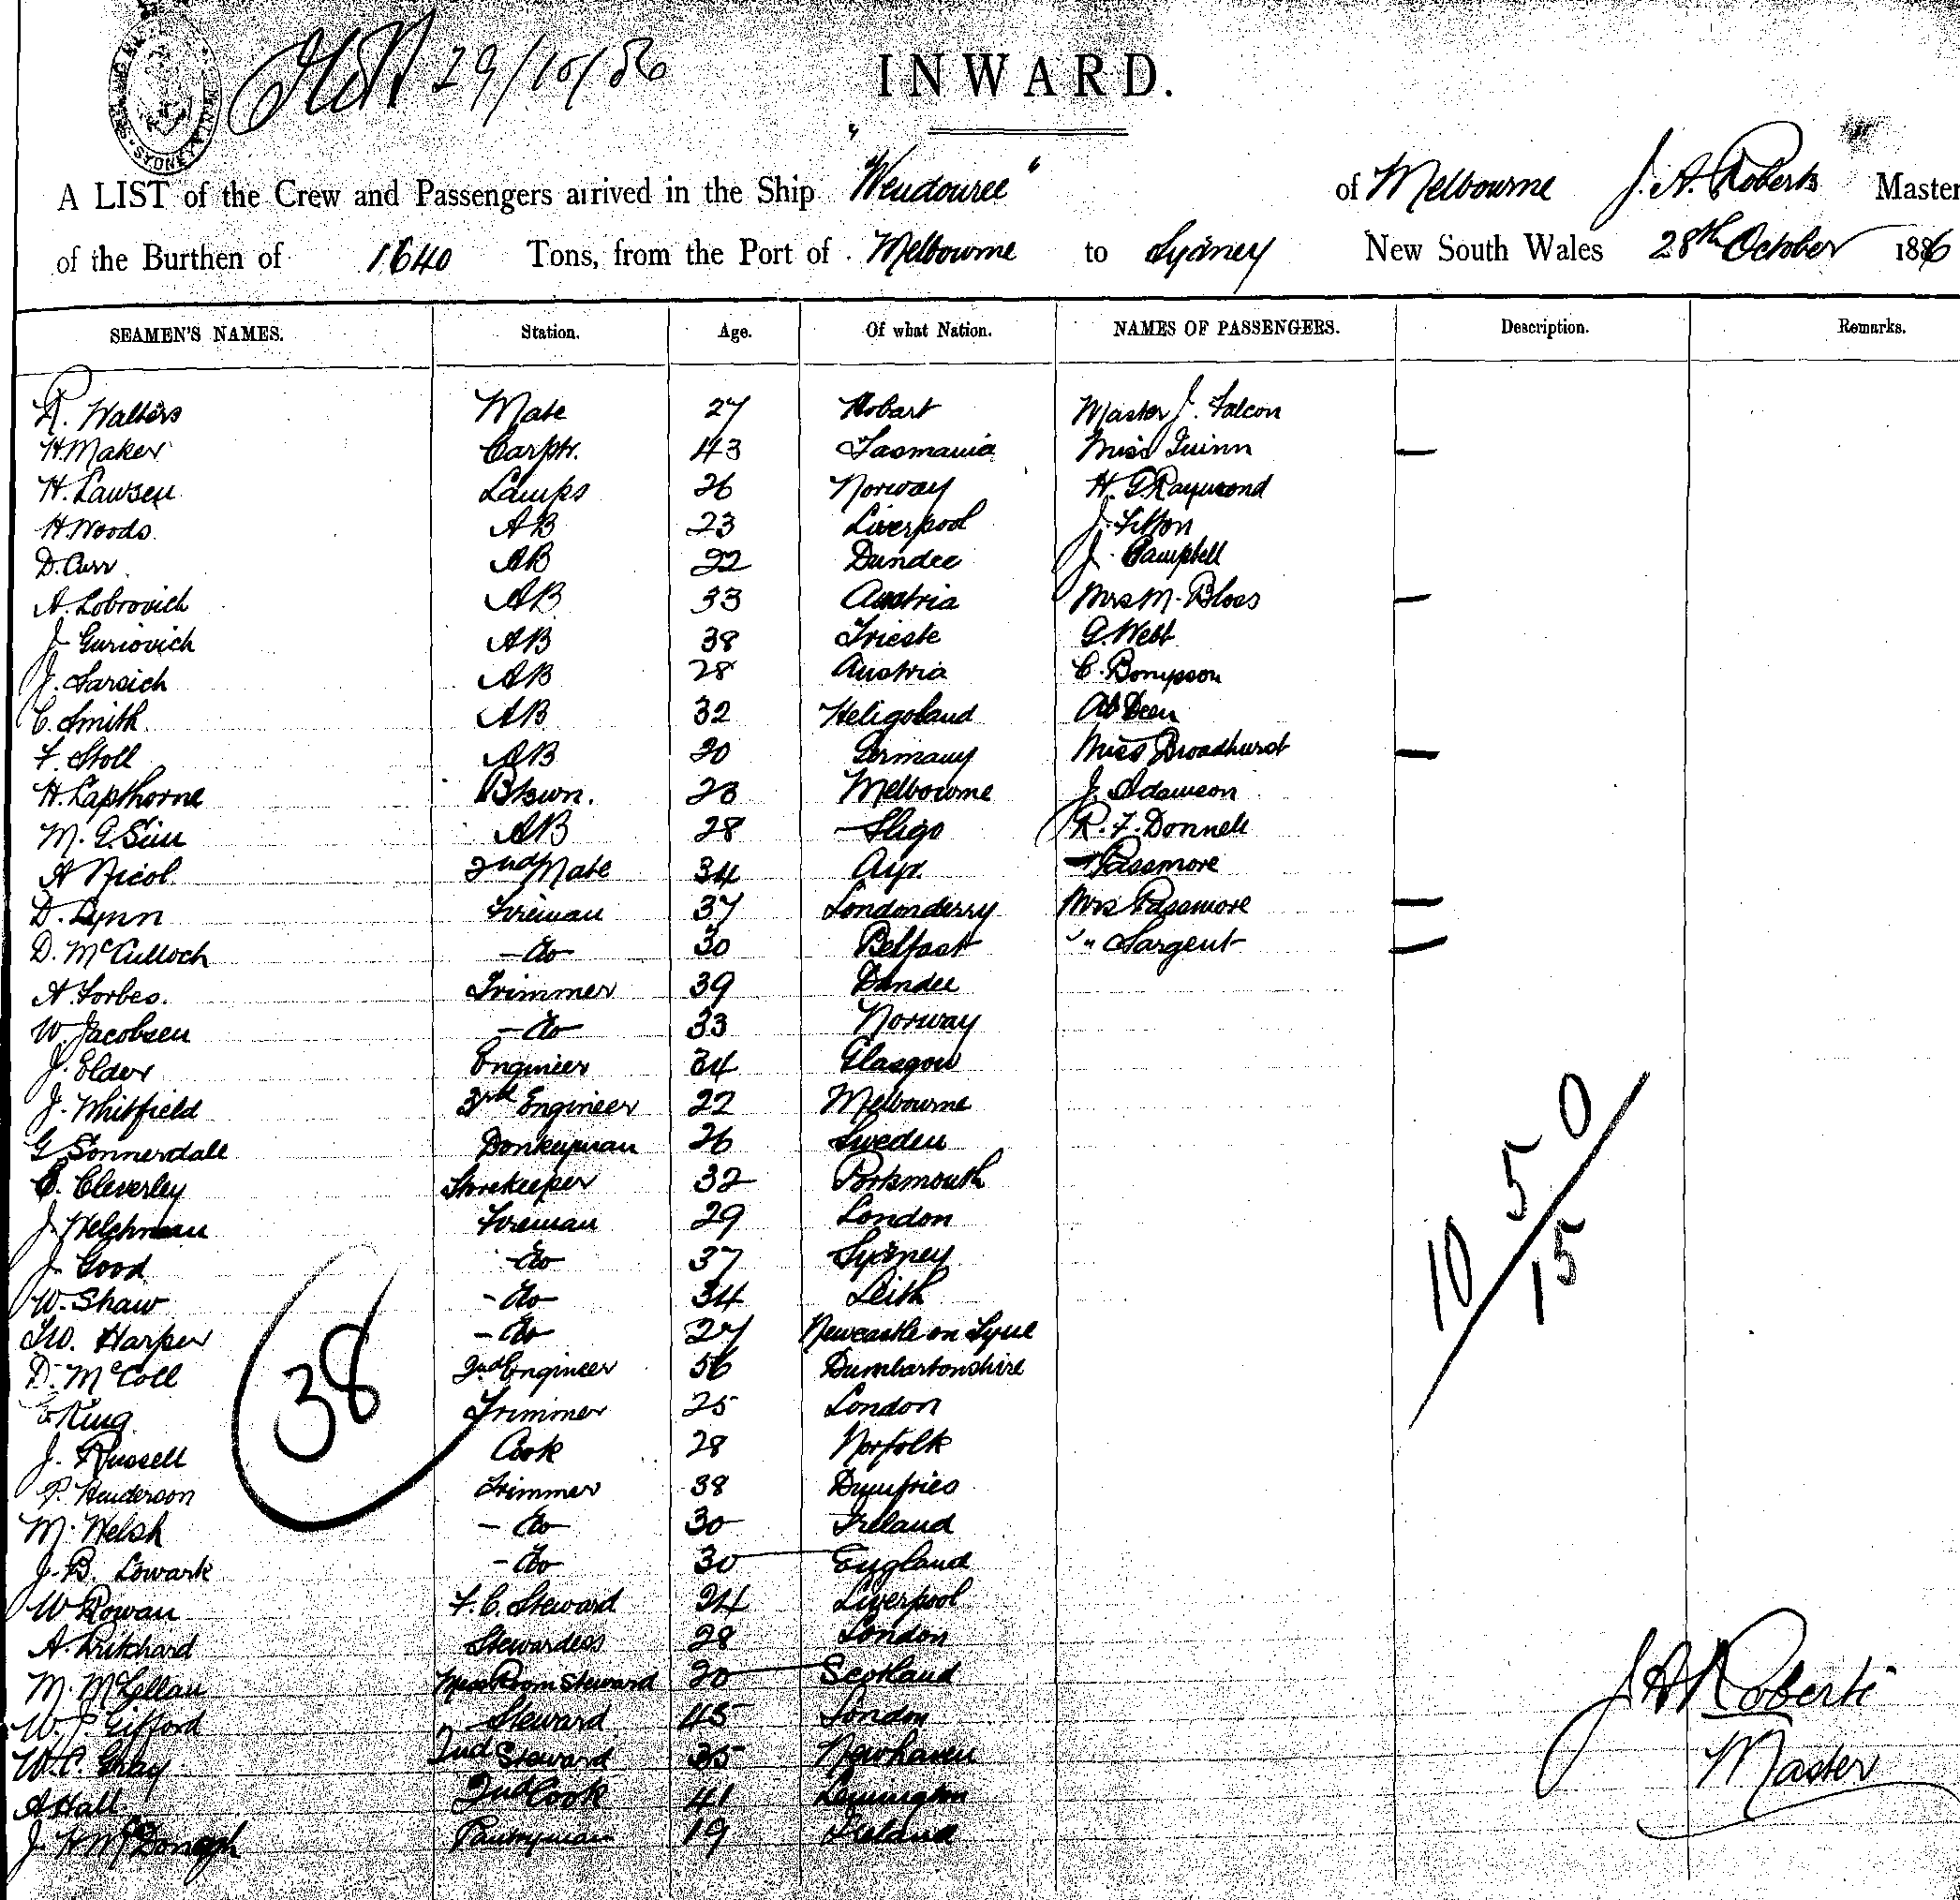 29/10/86
INWARD.
A LIST of the Crew and Passengers arrived in the Ship "Wendouree" of Melbourne J. A. Roberts Master
of the Burthen of 1640 Tons, from the Port of Melbourne to Sydney New South Wales 28th October 1886
SEAMEN'S NAMES. Station. Age. Of what Nation. NAMES OF PASSENGERS. Description. Remarks.
R. Walters Mate 27 Hobart Master J. Falcon
H. Maker Carptr. 43 Tasmania Miss Quinn —
H. Lawsen Lamps 26 Norway H. G Raymond
H. Woods AB 23 Liverpool J. Fitton
D. Carr AB 22 Dundee J. Campbell
A. Lobrovich AB 33 Austria Mrs M. Bloss —
J. Guriovich AB 38 Trieste G. Webb
J. Sarsich AB 28 Austria C. Bompson
C. Smith AB 32 Heligoland
F. Stoll AB 20 Germany Miss Broadhurst —
H. Lapthorne Btswn. 23 Melbourne J. Adamson
M. G. Sim AB 28 Sligo R. F. Donnell
A Nicol 2nd Mate 34 Ayr. — Passmore
D. Lynn Fireman 37 Londonderry Mrs Passmore —
D. McCulloch — do — 30 Belfast " " Sargent —
A. Forbes. Trimmer 39 Dundee
W. Jacobsen — do — 33 Norway
J. Elder Engineer 34 Glasgow
J. Whitfield 3rd Engineer 22 Melbourne
G Sonnerdale Donkeyman 26 Sweden
E. Cleverley Storekeeper 32 Portsmouth
J. Welchman Fireman 29 London
J. Good — do — 37 Sydney
W. Shaw — do — 34 Leith
Harper — do — 27 Newcastle on Tyne
D. McColl 2nd Engineer 56 Dumbartonshire
E King Trimmer 25 London
J. Russell Cook 28 Norfolk
P. Henderson Trimmer 38 Dumfries
M. Welsh — do — 30 Ireland
J. B. Lowark — do — 30 England
W Rowan F. C. Steward 24 Liverpool
A. Pritchard Stewardess 28 London
M. McLellan Mess Room Steward 20 Scotland
W. J. Gifford Steward 45 London
W. C. Gray 2nd Steward 35 Newhaven
A Hall 2nd Cook 41 Lemington
J. H McDonagh Pantryman 19 Ireland
38
10 5 0
15
J A Roberts
Master